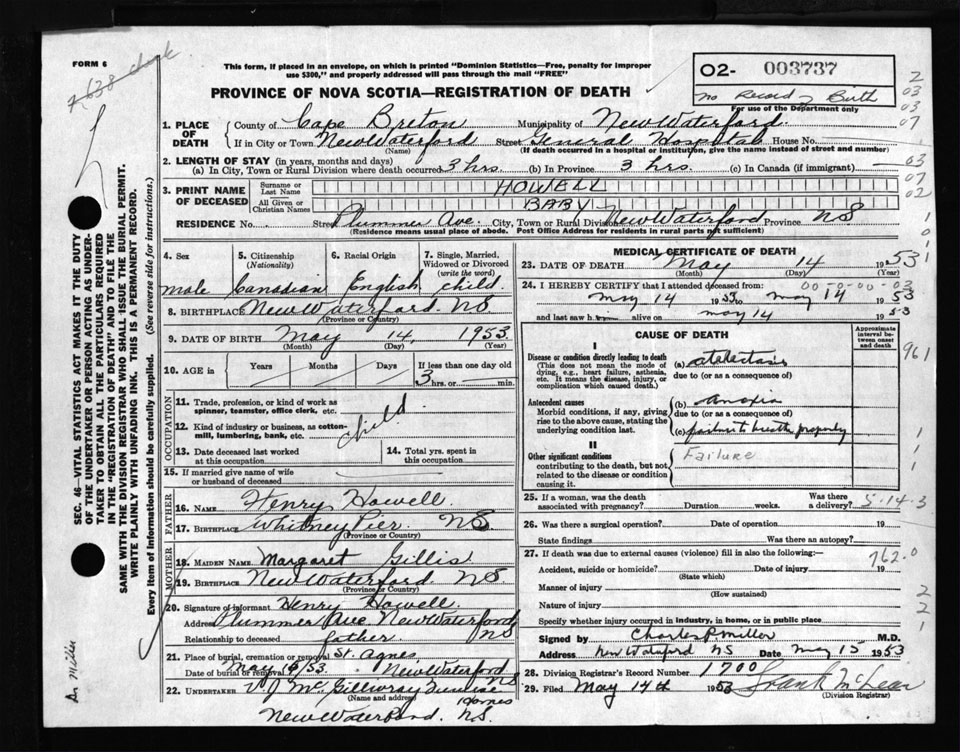 FORM 6
This form, if placed in an envelope, on which is printed "Dominion Statistics—Free, penalty for improper
use $300," and properly addressed will pass through the mail "FREE"
PROVINCE OF NOVA SCOTIA—REGISTRATION OF DEATH
02- 003737
No Record of Birth
For use of the Department only
1. PLACE OF DEATH
County of Cape Breton Municipality of New Waterford.
If in City or Town New Waterford Street General Hospital House No.
(Name) (If death occurred in a hospital or institution, give the name instead of street and number)
2. LENGTH OF STAY (in years, months and days)
(a) In City, Town or Rural Division where death occurred 3 hrs. (b) In Province 3 hrs. (c) In Canada (if immigrant) —
3. PRINT NAME OF DECEASED
Surname or Last Name HOWELL
All Given or Christian Names BABY
RESIDENCE No. Street Plummer Ave. City, Town or Rural Division New Waterford Province NS
(Residence means usual place of abode. Post Office Address for residents in rural parts not sufficient)
4. Sex
male
5. Citizenship
(Nationality)
Canadian
6. Racial Origin
English
7. Single, Married, Widowed or Divorced
(write the word)
child.
8. BIRTHPLACE New Waterford. NS.
(Province or Country)
9. DATE OF BIRTH May 14, 1953.
(Month) (Day) (Year)
10. AGE in Years Months Days If less than one day old
3 hrs. or — min.
OCCUPATION
11. Trade, profession, or kind of work as
spinner, teamster, office clerk, etc.
12. Kind of industry or business, as cotton-
mill, lumbering, bank, etc.
child.
13. Date deceased last worked
at this occupation
14. Total yrs. spent in
this occupation
15. If married give name of wife
or husband of deceased
FATHER
16. NAME Henry Howell.
17. BIRTHPLACE Whitney Pier. NS.
(Province or Country)
MOTHER
18. MAIDEN NAME Margaret Gillis
19. BIRTHPLACE New Waterford NS.
(Province or Country)
20. Signature of informant Henry Howell.
Address Plummer Ave. New Waterford
NS
Relationship to deceased father.
21. Place of burial, cremation or removal St. Agnes,
Date of burial or removal May /53. New Waterford
NS
22. UNDERTAKER V. J. McGillivray Funeral
(Name and address) Homes
New Waterford. NS.
MEDICAL CERTIFICATE OF DEATH
23. DATE OF DEATH May 14 1953
(Month) (Day) (Year)
24. I HEREBY CERTIFY that I attended deceased from:
May 14 1953 to May 14 1953
and last saw h alive on May 14 1953
CAUSE OF DEATH
Approximate interval between onset and death
I
Disease or condition directly leading to death
(This does not mean the mode of
dying, e.g., heart failure, asthenia,
etc. It means the disease, injury, or
complication which caused death.)
(a) atelectasis
due to (or as a consequence of)
Antecedent causes
Morbid conditions, if any, giving
rise to the above cause, stating the
underlying condition last.
(b) anoxia
due to (or as a consequence of)
(c) failure to breathe properly
II
Other significant conditions
contributing to the death, but not
related to the disease or condition
causing it.
Failure
25. If a woman, was the death
associated with pregnancy? Duration weeks. Was there
a delivery?
5-14-3
26. Was there a surgical operation? Date of operation 19
State findings Was there an autopsy?
27. If death was due to external causes (violence) fill in also the following:—
762.0
Accident, suicide or homicide? Date of injury 19
(State which)
Manner of injury
(How sustained)
Nature of injury
Specify whether injury occurred in industry, in home, or in public place
Signed by Charles P Miller M.D.
Address New Waterford NS Date May 15 1953
28. Division Registrar's Record Number 1700
29. Filed May 14th 1953 Frank McLean
(Division Registrar)
SEC. 46—VITAL STATISTICS ACT MAKES IT THE DUTY
OF THE UNDERTAKER OR PERSON ACTING AS UNDER-
TAKER TO OBTAIN ALL THE PARTICULARS REQUIRED
IN THE "REGISTRATION OF DEATH" AND TO FILE THE
SAME WITH THE DIVISION REGISTRAR WHO SHALL ISSUE THE BURIAL PERMIT.
WRITE PLAINLY WITH UNFADING INK. THIS IS A PERMANENT RECORD.
Every item of Information should be carefully supplied. (See reverse side for instructions.)
Dr Miller